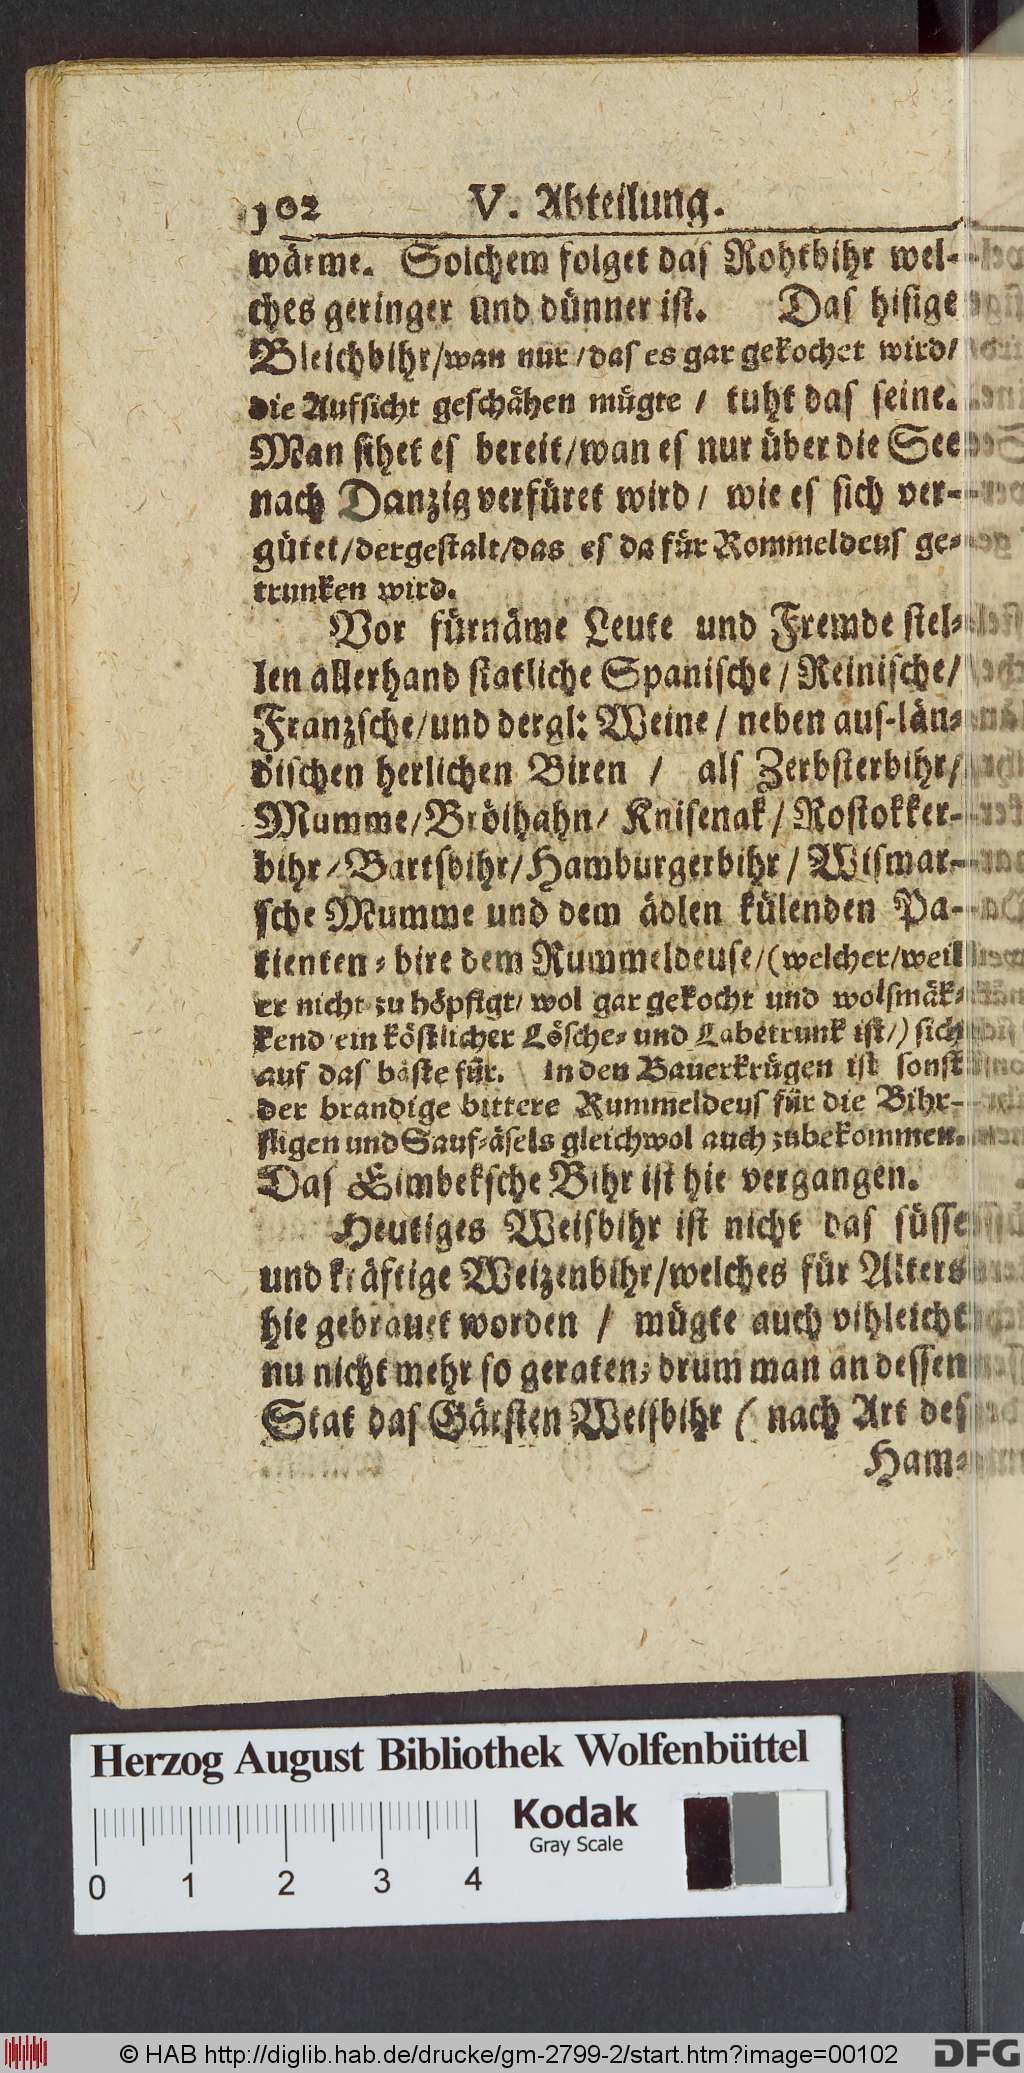 102 V. Abteilung.
wärme. Solchem folget das Rohtbihr wel-
ches geringer und dünner ist. Das hisige
Bleichbihr/wan nur/das es gar gekochet wird/
die Aufsicht geschähen mügte / tuht das seine.
Man sihet es bereit/wan es nur über die See
nach Danzig verfüret wird/ wie es sich ver-
gütet/dergestalt/das es da für Rommeldeus ge-
trunken wird.
Vor fürnäme Leute und Fremde stel-
len allerhand statliche Spanische/Reinische/
Franzsche/und dergl: Weine/neben aus-län-
dischen herlichen Biren / als Zerbsterbihr/
Mumme/Bröihahn/ Knisenak/Rostokker-
bihr/Bartsbihr/Hamburgerbihr/Wismar-
sche Mumme und dem ädlen külenden Pa-
tienten-bire dem Rummeldeuse/(welcher/weil
er nicht zu höpfigt/ wol gar gekocht und wolsmäk-
kend ein köstlicher Lösche- und Labetrunk ist/) sich
auf das bäste für. in den Bauerkrügen ist sonst
der brandige bittere Rummeldeus für die Bihr-
fligen und Sauf-äsels gleichwol auch zubekommen.
Das Eimbeksche Bihr ist hie vergangen.
Heutiges Weisbihr ist nicht das süsse
und kräftige Weizenbihr/welches für Alters
hie gebrauet worden / mügte auch vihleicht
nu nicht mehr so geraten; drum man an dessen
Stat das Gärsten Weisbihr ( nach Art des
Ham-
Herzog August Bibliothek Wolfenbüttel
Kodak
Gray Scale
0 1 2 3 4
© HAB http://diglib.hab.de/drucke/gm-2799-2/start.htm?image=00102
DFG